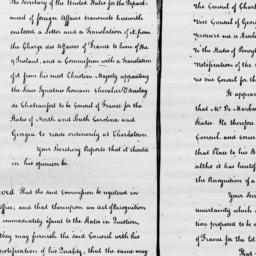 The Secretary of the United States for the Depart-
ment of foreign Affairs transmits herewith
enclosed a Letter and a Translation of it, from
the Chargé des Affaires of France to him of the
9 Instant, and a Commission with a Translation
of it from his most Christian Majesty appointing
the Sieur Ignatius Romain Chevalier D'avistay
de Chateaufort to be Consul of France for the
States of North and South Carolina and
Georgia to reside ordinarily at Charlestown
Your Secretary Reports that it should
in his opinion be
ved That the said Commission be registered in
ffice, and that thereupon an Act of Recognition
immediately issued to the States in Question,
they may furnish the said Consul with his
notification of his Quality, that the same may
the Consul of Charle
Vice Consul of Georg
procure an a Resol
to the State of Pensyl
Notification of the
as vice Consul for th
It appears
that Mr De Marbois
States. He therefore
Consul, and some
that Place to his B
altho it has heretof
the Recognition of a
Your Secre
uncertainty which a
tion proposed to be
of France for the tot
That